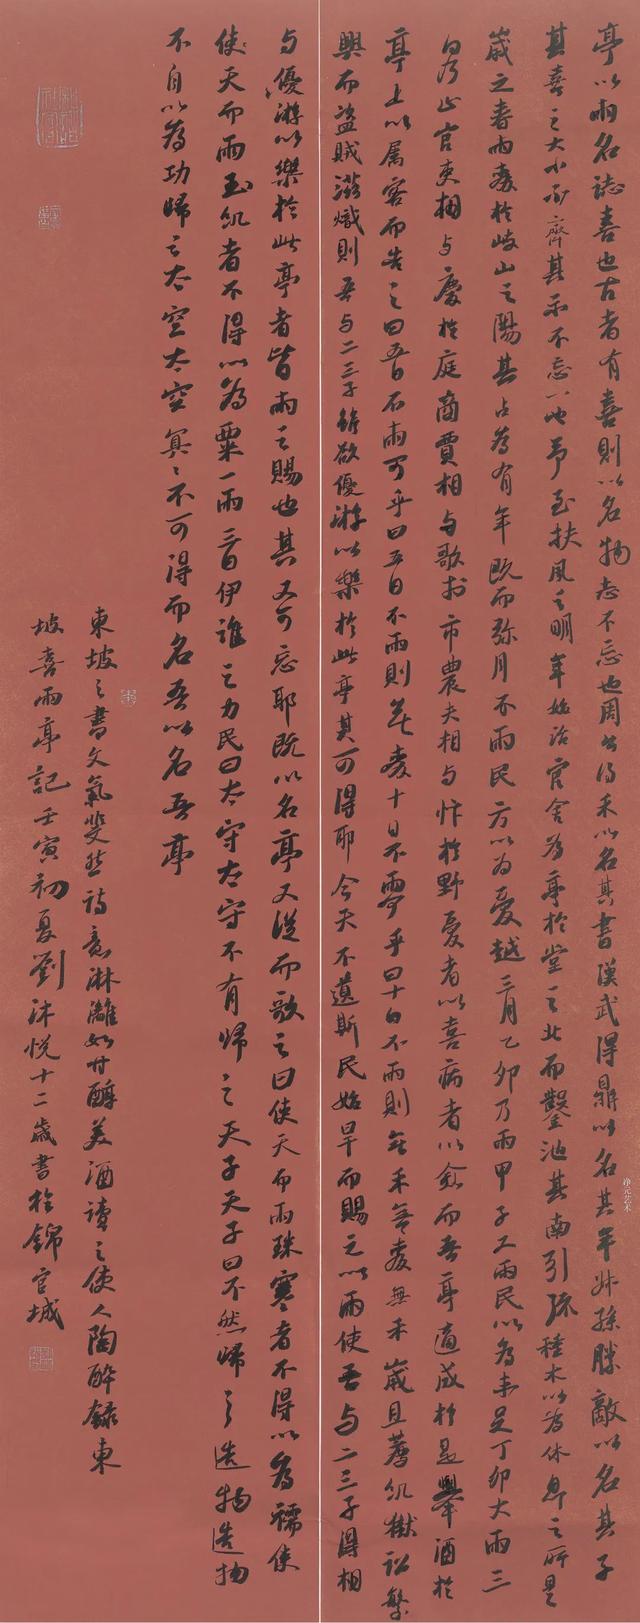 亭以雨名誌喜也古者有喜則以名物志不忘也周公得禾以名其書漢武得鼎以名其年叔孫勝敵以名其子
其喜之大小不齊其示不忘一也予至扶風之明年始治官舍為亭於堂之北而鑿池其南引流種木以為休息之所是
歲之春雨麥於岐山之陽其占為有年既而弥月不雨民方以為憂越三月乙卯乃雨甲子又雨民以為未足丁卯大雨三
日乃止官吏相与慶於庭商賈相与歌於市農夫相与忭於野憂者以喜病者以愈而吾亭適成於是舉酒於
亭上以属客而告之曰五日不雨可乎曰五日不雨則無麥十日不雨可乎曰十日不雨則無禾無麥無禾歲且薦飢獄訟繁
興而盜賊滋熾則吾与二三子雖欲優游以樂於此亭其可得耶今天不遺斯民始旱而賜之以雨使吾与二三子得相
与優游以樂於此亭者皆雨之賜也其又可忘耶既以名亭又從而歌之曰使天而雨珠寒者不得以為襦使
使天而雨玉飢者不得以為粟一雨三日伊誰之力民曰太守太守不有歸之天子天子曰不然歸之造物造物
不自以為功歸之太空太空冥冥不可得而名吾以名吾亭
東坡之書文氣斐然詩意淋灕如甘醇美酒讀之使人陶醉録東
坡喜雨亭記壬寅初夏劉沐悅十二歲書於錦官城
净元艺术